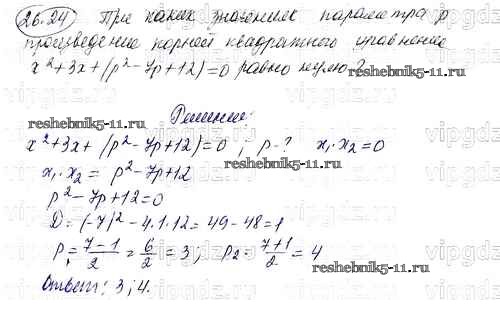 26.24 При каких значениях параметра р
произведение корней квадратного уравнения
x²+3x+(р²-7р+12)=0 равно нулю?
Решение:
reshebnik5-11.ru
x²+3x+(р²-7р+12)=0 ; р-? x₁·x₂=0
reshebnik5-11.ru
x₁·x₂= р²-7р+12
р²-7р+12=0
D=(-7)²-4·1·12=49-48=1
р₁=(7-1)/2=6/2=3; р₂=(7+1)/2=4
reshebnik5-11.ru
Ответ: 3; 4.
vipgdz